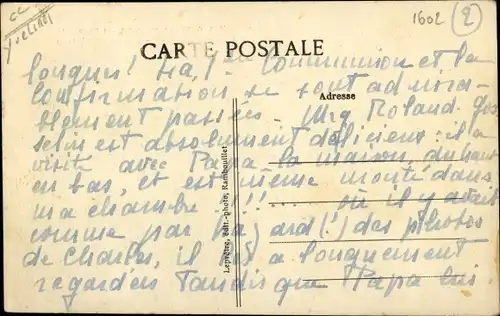 CC
Yvelines
1602
2
CARTE POSTALE
longues! La 1ère Communion et la
Confirmation se sont admira-
Adresse
blement passées. Mgr Roland-Gos
selin est absolument délicieux: il a
visité avec Papa la maison, du haut
en bas, et est même monté dans
ma chambre !!!... où il y avait
comme par hasard(!) des photos
de Charles, il les a longuement
regardées tandis que Papa lui
Leprêtre, édit.-photo, Rambouillet